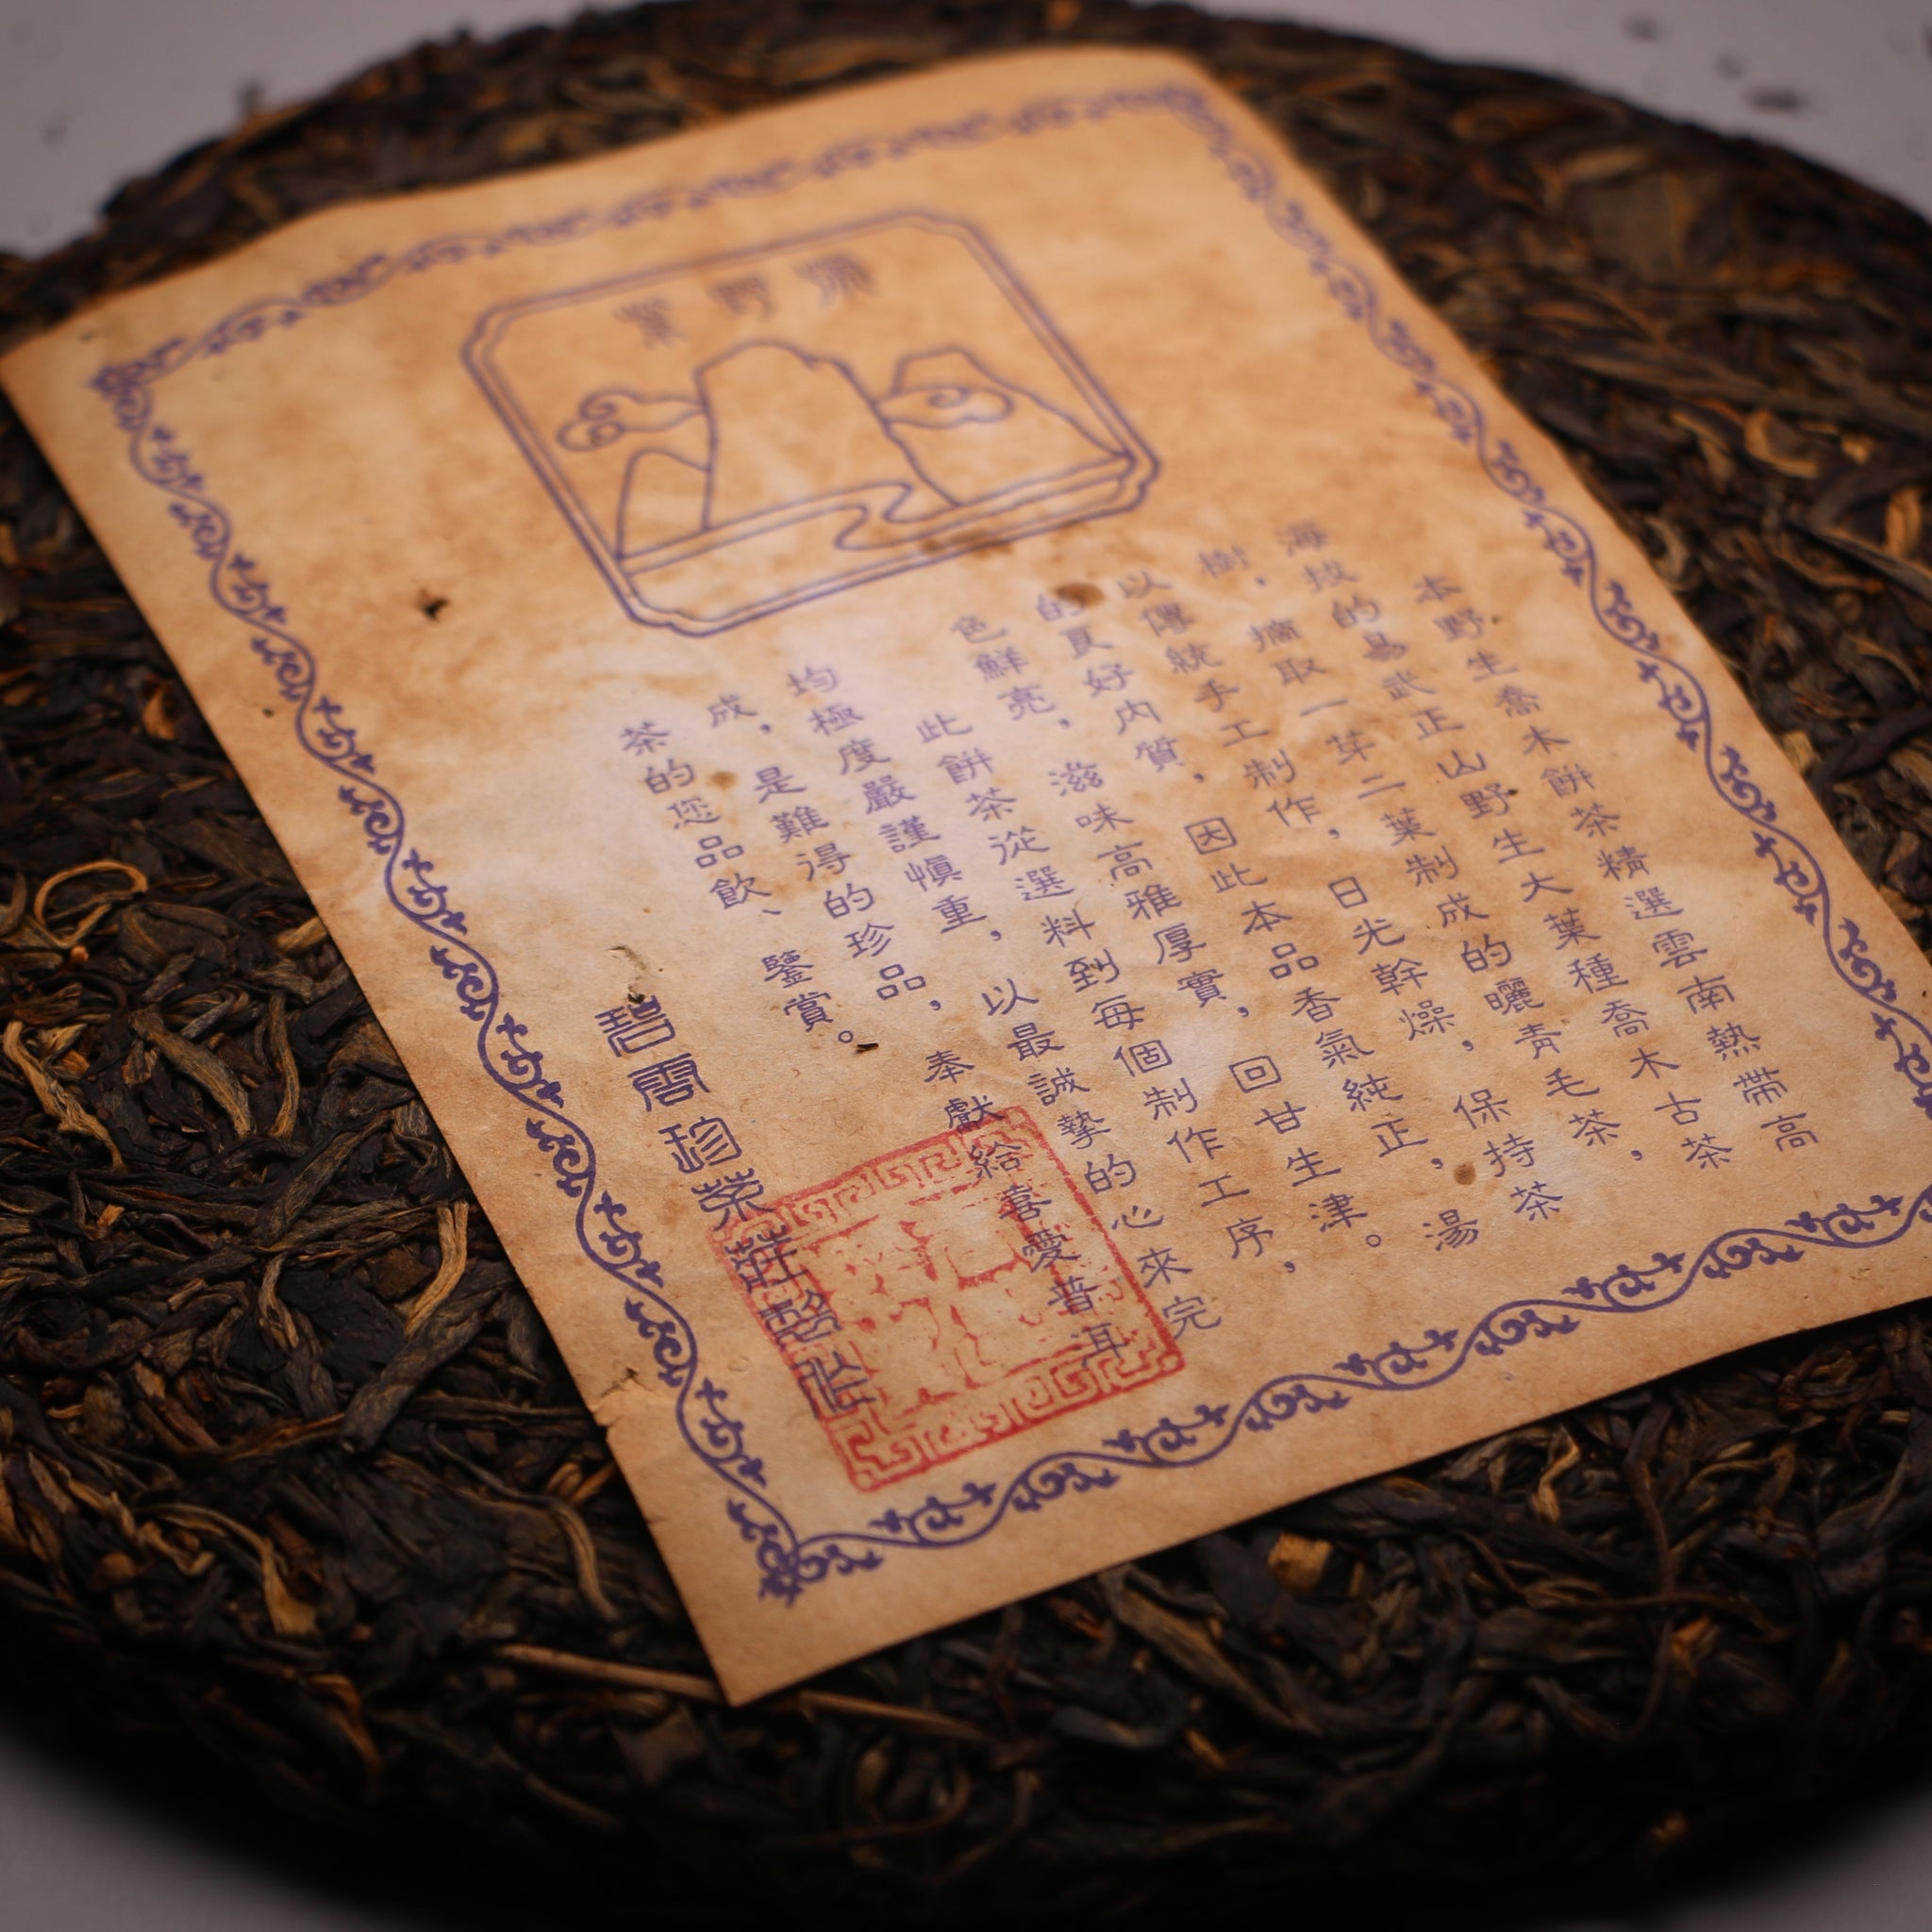 本野生喬木餅茶精選雲南熱帶高
海拔的易武正山野生大葉種喬木古茶
樹,摘取一芽二葉制成的曬青毛茶,
以傳統手工制作,日光幹燥,保持茶
的良好内質,因此本品香氣純正,湯
色鮮亮,滋味高雅厚實,回甘生津。
此餅茶從選料到每個制作工序,
均極度嚴謹慎重,以最誠摯的心來完
成,是難得的珍品,奉獻給喜愛普洱
茶的您品飲、鑒賞。
碧雲珍茶莊